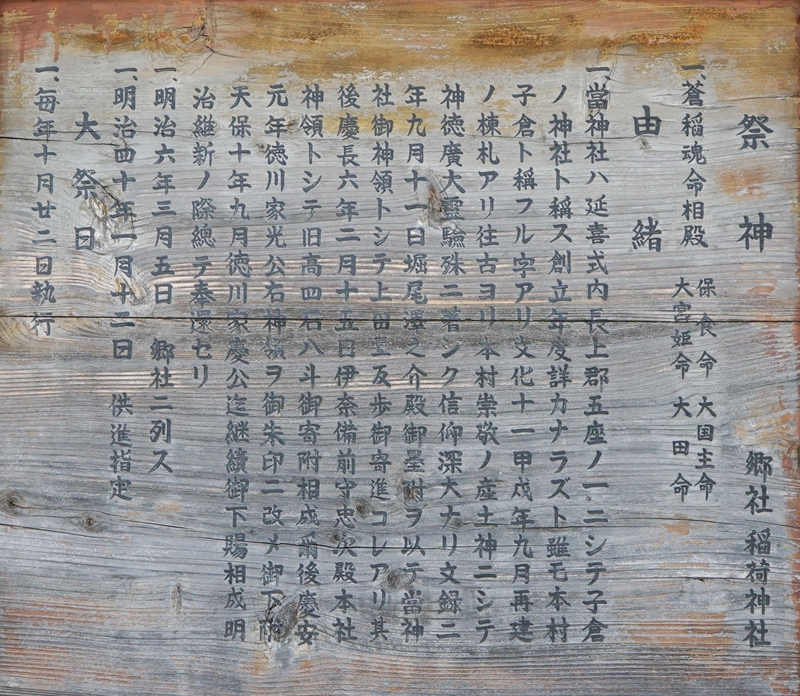 祭神 郷社 稲荷神社
一、蒼稲魂命相殿 保食命 大国主命
大宮姫命 大田命
由緒
一、當神社ハ延喜式内長上郡五座ノ一ニシテ子倉
ノ神社ト稱ス創立年度詳カナラズト雖モ本村
子倉ト稱フル字アリ文化十一甲戌年九月再建
ノ棟札アリ往古ヨリ本村崇敬ノ産土神ニシテ
神徳廣大霊驗殊ニ著シク信仰深大ナリ文録二
年九月十一日堀尾澤之介殿御墨附ヲ以テ當神
社御神領トシテ上田壹反歩御寄進コレアリ其
後慶長六年二月十五日伊奈備前守忠次殿本社
神領トシテ旧高四石八斗御寄附相成爾後慶安
元年徳川家光公右神領ヲ御朱印ニ改メ御下賜
天保十年九月徳川家慶公迄継續御下賜相成明
治維新ノ際總テ奉還セリ
一、明治六年三月五日 郷社ニ列ス
一、明治四十年一月十二日 供進指定
大祭日
一、毎年十月廿二日執行